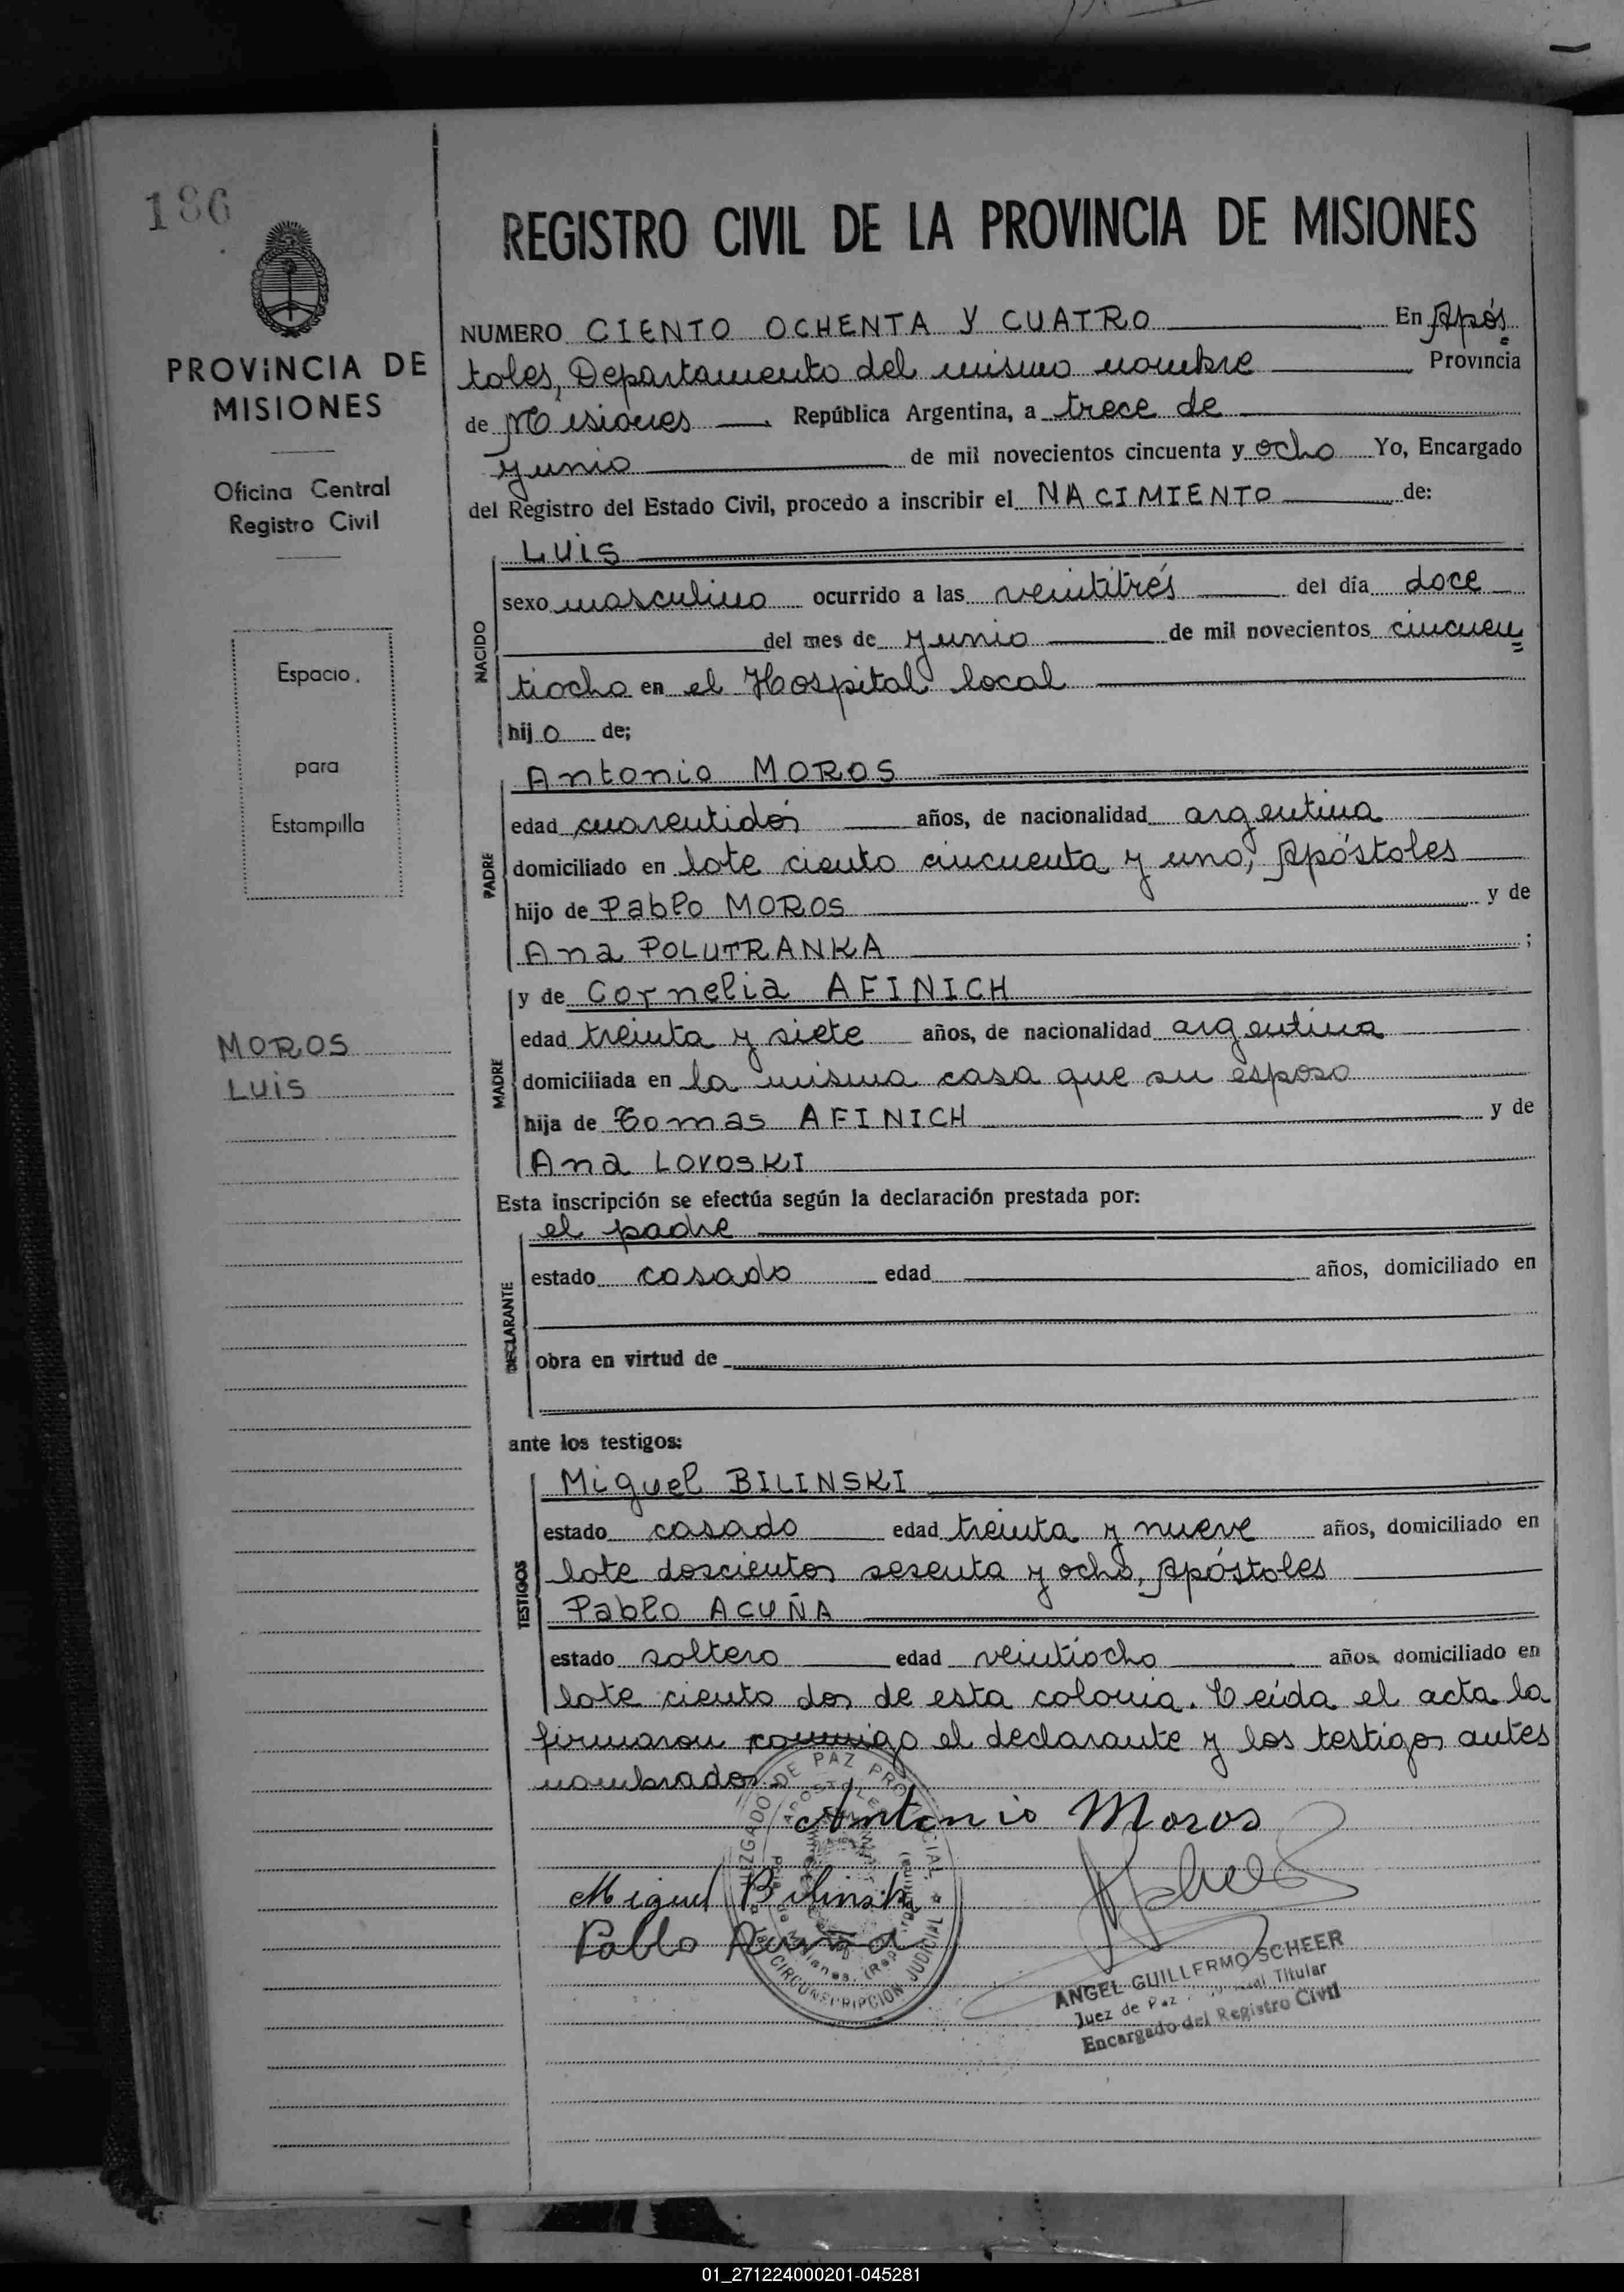 186
PROVINCIA DE
MISIONES
Oficina Central
Registro Civil
Espacio
para
Estampilla
MOROS
LUIS
REGISTRO CIVIL DE LA PROVINCIA DE MISIONES
NUMERO CIENTO OCHENTA Y CUATRO En Após
toles, Departamento del mismo nombre Provincia
de Misiones República Argentina, a trece de
junio de mil novecientos cincuenta y ocho Yo, Encargado
del Registro del Estado Civil, procedo a inscribir el NACIMIENTO de:
NACIDO
LUIS
sexo masculino ocurrido a las veintitrés del día doce
del mes de junio de mil novecientos cincuen
tiocho en el Hospital local
hijo de;
PADRE
Antonio MOROS
edad cuarentidós años, de nacionalidad argentina
domiciliado en lote ciento cincuenta y uno, Apóstoles
hijo de Pablo MOROS y de
Ana POLUTRANKA ;
MADRE
y de Cornelia AFINICH
edad treinta y siete años, de nacionalidad argentina
domiciliada en la misma casa que su esposo
hija de Tomas AFINICH y de
Ana LOVOSKI
Esta inscripción se efectúa según la declaración prestada por:
DECLARANTE
el padre
estado casado edad años, domiciliado en
obra en virtud de
ante los testigos:
TESTIGOS
Miguel BILINSKI
estado casado edad treinta y nueve años, domiciliado en
lote doscientos sesenta y ocho, Apóstoles
Pablo ACUÑA
estado soltero edad veintiocho años, domiciliado en
lote ciento dos de esta colonia. Leída el acta la
firmaron conmigo el declarante y los testigos antes
nombrados.
Antonio Moros
Miguel Bilinski
Pablo Acuña
JUZGADO DE PAZ PROVINCIAL
CIRCUNSCRIPCION JUDICIAL
ANGEL GUILLERMO SCHEER
Juez de Paz Titular
Encargado del Registro Civil
01_271224000201-045281